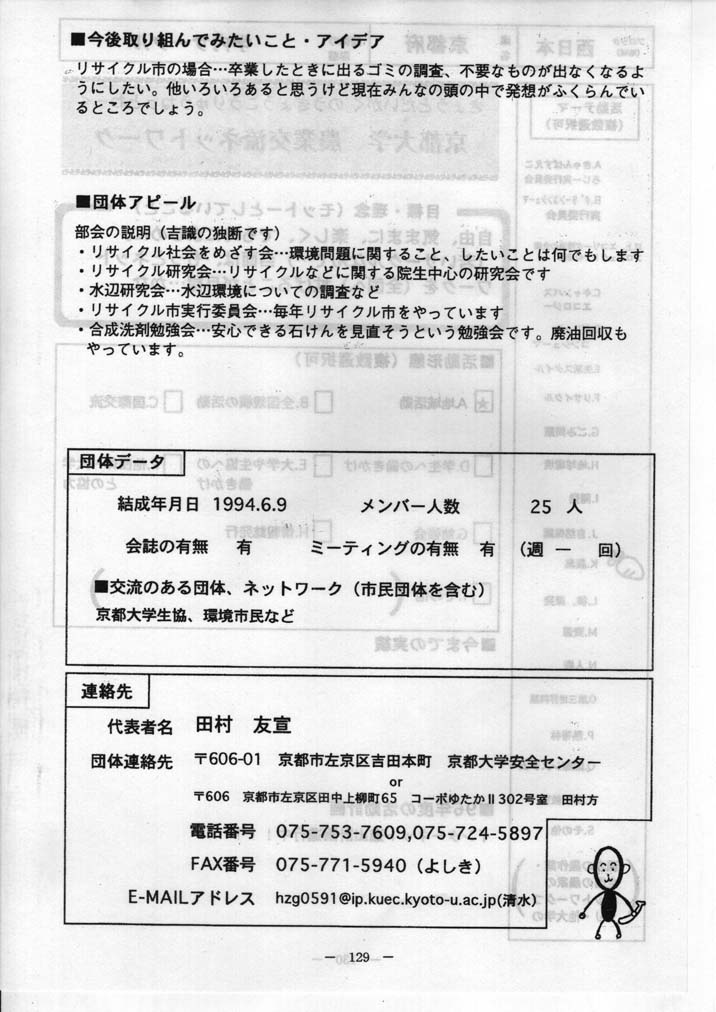 ■今後取り組んでみたいこと・アイデア
リサイクル市の場合…卒業したときに出るゴミの調査、不要なものが出なくなるよ
うにしたい。他いろいろあると思うけど現在みんなの頭の中で発想がふくらんでい
るところでしょう。
■団体アピール
部会の説明（吉識の独断です）
・リサイクル社会をめざす会…環境問題に関すること、したいことは何でもします
・リサイクル研究会…リサイクルなどに関する院生中心の研究会です
・水辺研究会…水辺環境についての調査など
・リサイクル市実行委員会…毎年リサイクル市をやっています
・合成洗剤勉強会…安心できる石けんを見直そうという勉強会です。廃油回収も
やっています。
団体データ
結成年月日 1994.6.9 メンバー人数 25 人
会誌の有無 有 ミーティングの有無 有 （週 一 回）
■交流のある団体、ネットワーク（市民団体を含む）
京都大学生協、環境市民など
連絡先
代表者名 田村 友宣
団体連絡先 〒606-01 京都市左京区吉田本町 京都大学安全センター
or
〒606 京都市左京区田中上柳町65 コーポゆたかⅡ302号室 田村方
電話番号 075-753-7609,075-724-5897
FAX番号 075-771-5940（よしき）
E-MAILアドレス hzg0591@ip.kuec.kyoto-u.ac.jp(清水)
— 129 —